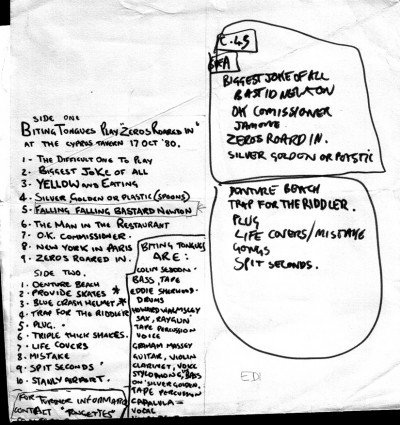 SIDE ONE
BITING TONGUES PLAY "ZEROS ROARED IN"
AT THE CYPRUS TAVERN 17 OCT '80.
1 - THE DIFFICULT ONE TO PLAY
2 - BIGGEST JOKE OF ALL
3 - YELLOW AND EATING
4. SILVER GOLDEN OR PLASTIC (SPOONS)
5. FALLING FALLING BASTARD NEWTON
6 - THE MAN IN THE RESTAURANT
7 - O.K. COMMISSIONER.
8. NEW YORK IN PARIS
9. ZEROS ROARED IN.
SIDE TWO.
1. DENTURE BEACH
2. PROVIDE SKATES *
3. BLUE CRASH HELMET *
4. TRAP FOR THE RIDDLER
5. PLUG.
6. TRIPLE THICK SHAKES.
7. LIFE COVERS
8. MISTAKE
9. SPIT SECONDS
10. AIRPORT.
FOR FURTHER INFORMATION
CONTACT
BITING TONGUES
ARE:
COLIN SEDDON -
BASS, TAPE
EDDIE SHERWOOD -
DRUMS
HOWARD WALMSLEY
SAX, RAYGUN
TAPE PERCUSSION
VOICE
GRAHAM MASSEY
GUITAR, VIOLIN
CLARINET, VOICE
BASS
ON 'SILVER GOLDEN,
TAPE PERCUSSION
CAPALULA =
VOCAL
C.45
BIGGEST JOKE OF ALL
NEWTON
OK COMISSIONER
ZEROS ROARD IN.
SILVER GOLDON OR PLASTIC
DENTURE BEACH
TRAP FOR THE RIDDLER.
PLUG
LIFE COVERS/MISTAKE
GONGS
SPIT SECONDS.
EDI